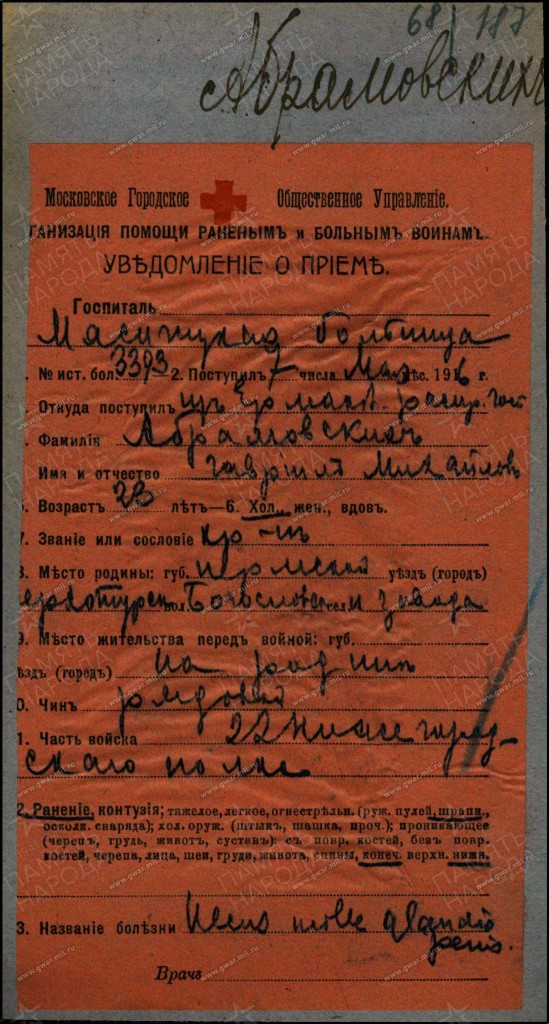 68/187
Абрамовскихъ
Московское Городское Общественное Управленіе.
ГАНИЗАЦІЯ ПОМОЩИ РАНЕНЫМЪ и БОЛЬНЫМЪ ВОИНАМЪ
УВѢДОМЛЕНІЕ О ПРІЕМѢ.
Госпиталь
больница
. № ист. бол. 3393 2. Поступилъ 7 числа Мая мѣс. 1916 г.
. Откуда поступилъ
. Фамилія Абрамовскихъ
Имя и отчество Гавріилъ Михайлов
. Возрастъ 23 лѣтъ—6. Хол., жен., вдов.
7. Званіе или сословіе кр-нъ
8. Мѣсто родины: губ. Пермской уѣздъ (городъ)
ерхотурск вол. Богословск сел и завода
9. Мѣсто жительства передъ войной: губ.
ѣздъ (городъ) на родинѣ
0. Чинъ рядовой
1. Часть войска 22 Нижегород-
скаго полка
2. Раненіе, контузія; тяжелое, легкое, огнестрѣльн. (руж. пулей, шрапн.,
осколк. снаряда); хол. оруж. (штыкъ, шашка, проч.); проникающее
(черепъ, грудь, животъ, суставъ): съ повр. костей, безъ повр.
костей, черепа, лица, шеи, груди, живота, спины, конеч. верхн. нижн.
3. Названіе болѣзни Ulcus molle glandis
penis.
Врачъ